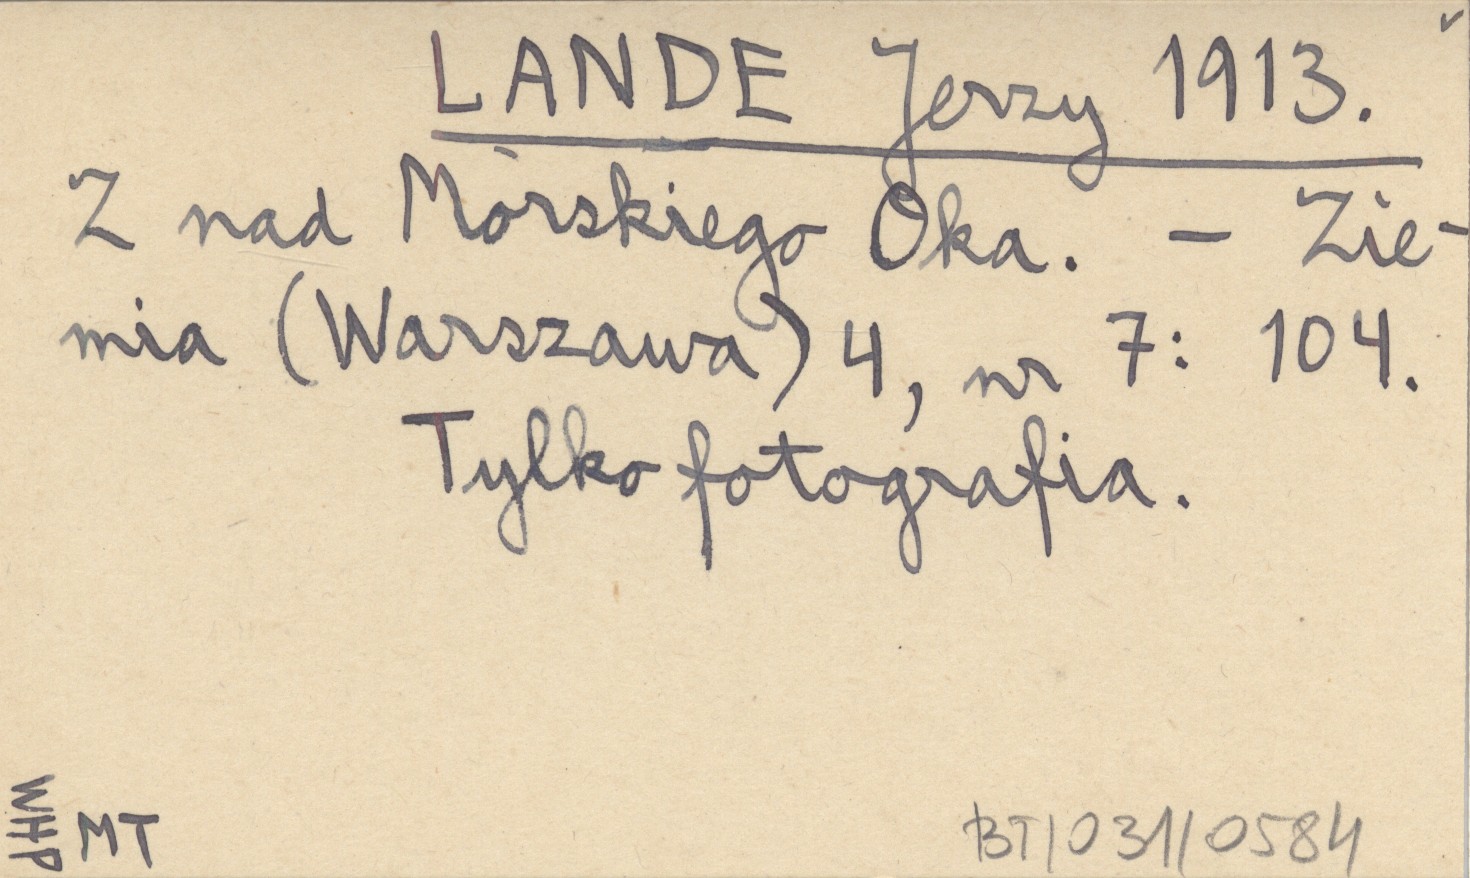 LANDE Jerzy 1913.
Z nad Morskiego Oka. – Zie-
mia (Warszawa) 4, nr 7: 104.
Tylko fotografia.
WHP
MT
BT/031/0584